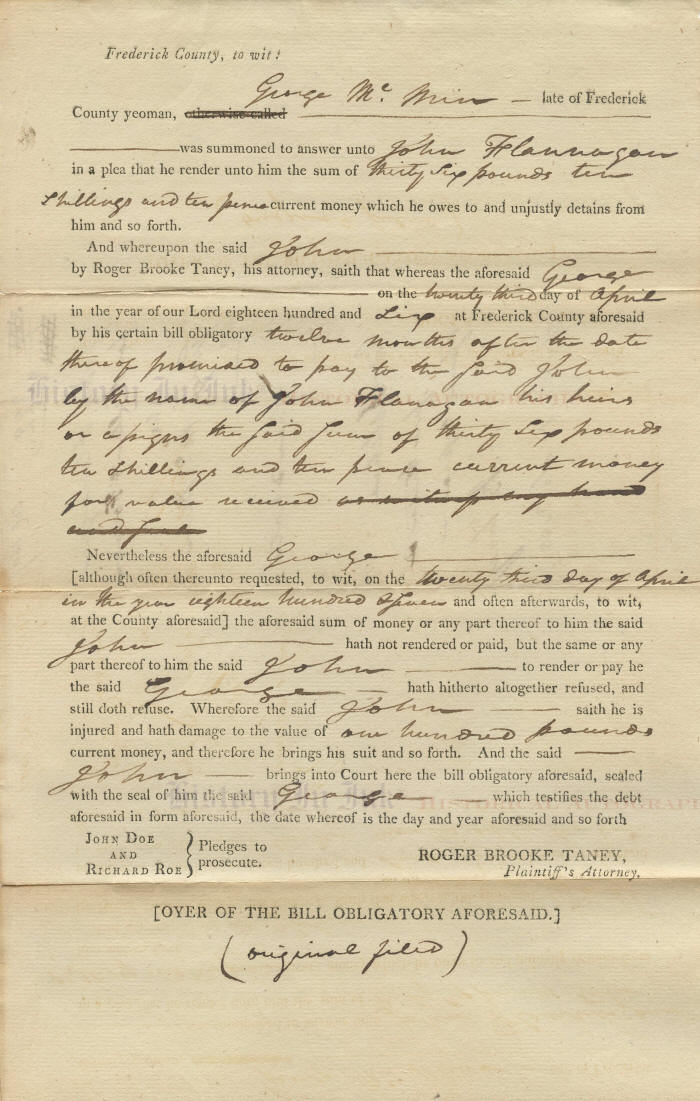 Frederick County, to wit:
George Mc. Minn — late of Frederick
County yeoman, otherwise called
was summoned to answer unto John Flannagan
in a plea that he render unto him the sum of thirty Six pounds ten
Shillings and ten pence current money which he owes to and unjustly detains from
him and so forth.
And whereupon the said John
by Roger Brooke Taney, his attorney, saith that whereas the aforesaid George
on the twenty third day of April
in the year of our Lord eighteen hundred and Six at Frederick County aforesaid
by his certain bill obligatory twelve months after the date
thereof promised to pay to the said John
by the name of John Flanagan his heirs
or assigns the said sum of thirty Six pounds
ten Shillings and ten pence current money
for value received as witness my hand
and seal
Nevertheless the aforesaid George
[although often thereunto requested, to wit, on the twenty third day of April
in the year eighteen hundred & seven and often afterwards, to wit,
at the County aforesaid] the aforesaid sum of money or any part thereof to him the said
John hath not rendered or paid, but the same or any
part thereof to him the said John to render or pay he
the said George hath hitherto altogether refused, and
still doth refuse. Wherefore the said John saith he is
injured and hath damage to the value of one hundred pounds
current money, and therefore he brings his suit and so forth. And the said
John brings into Court here the bill obligatory aforesaid, sealed
with the seal of him the said George which testifies the debt
aforesaid in form aforesaid, the date whereof is the day and year aforesaid and so forth
John Doe
and
Richard Roe } Pledges to
prosecute.
ROGER BROOKE TANEY,
Plaintiff's Attorney.
[OYER OF THE BILL OBLIGATORY AFORESAID.]
(original filed)